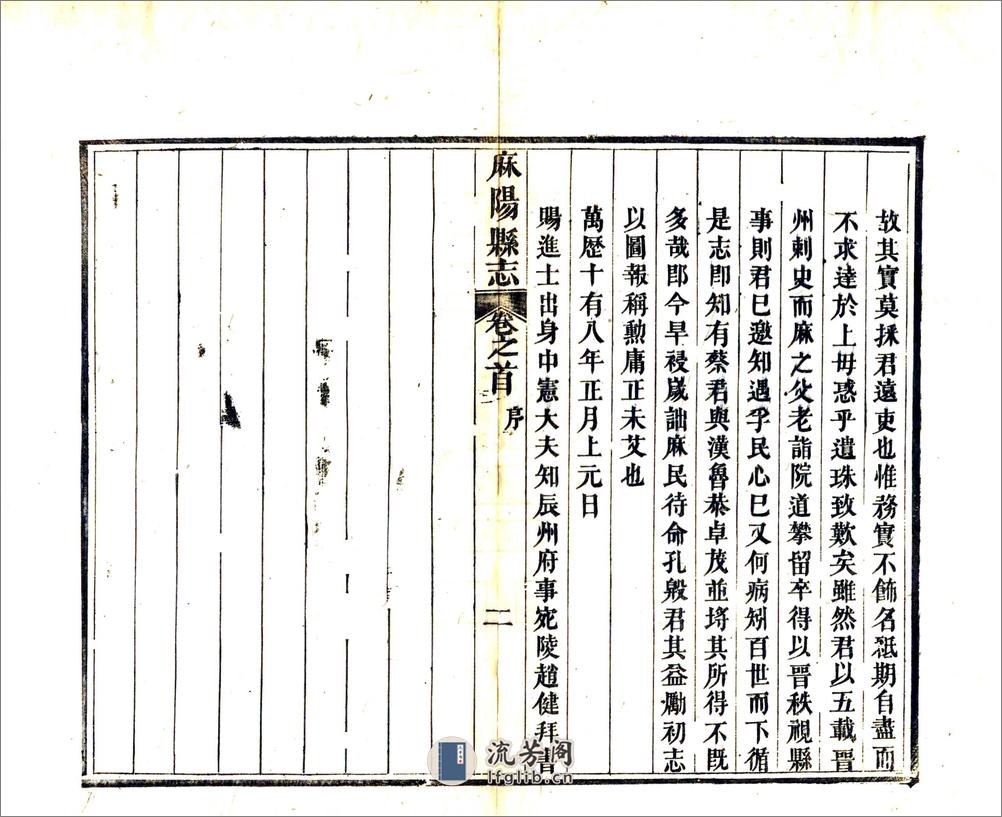 故其實莫採君遠吏也惟務實不飾名祗期自盡而
不求達於上毋惑乎遺珠致歎矣雖然君以五載晉
州刺史而麻之父老詣院道攀留卒得以晉秩視縣
事則君已邀知遇孚民心已又何病矧百世而下循
是志卽知有蔡君與漢魯恭卓茂並埒其所得不既
多哉卽今旱祲歲詘麻民待命孔殷君其益勵初志
以圖報稱勲庸正未艾也
萬歷十有八年正月上元日
賜進士出身中憲大夫知辰州府事宛陵趙健拜書
麻陽縣志 卷之首 序 二
流芳阁
lfglib.cn